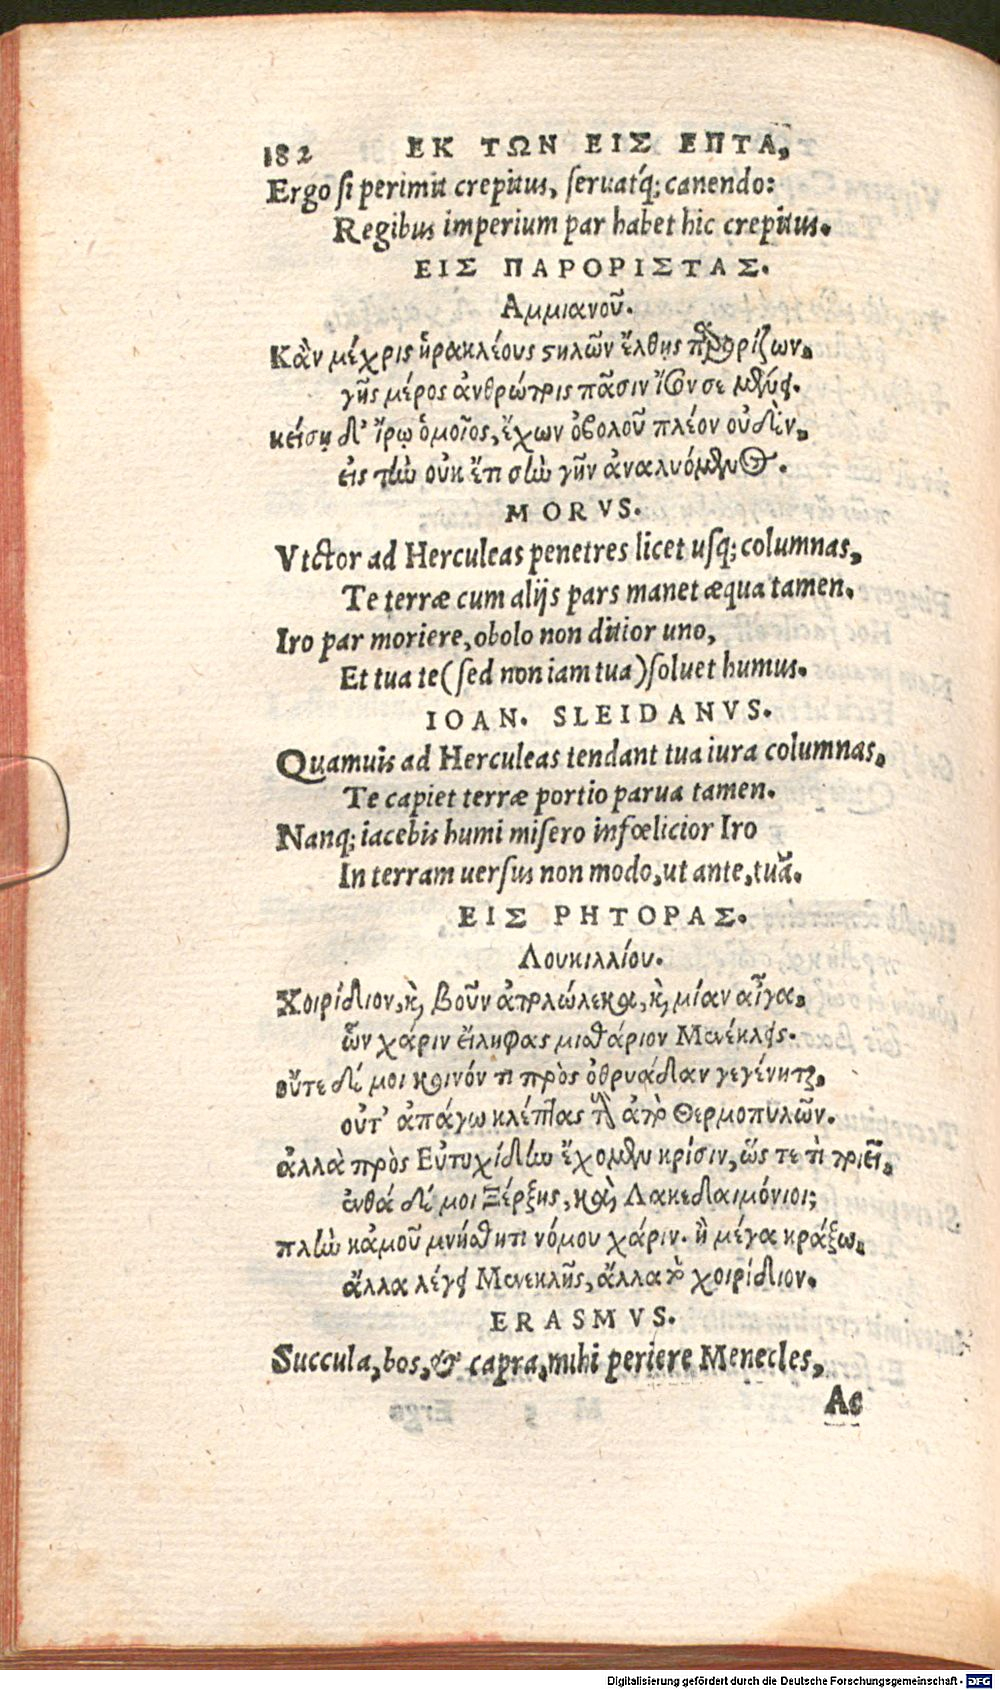 182 ΕΚ ΤΩΝ ΕΙΣ ΕΠΤΑ,
Ergo si perimit crepitus, seruatq; canendo:
Regibus imperium par habet hic crepitus.
ΕΙΣ ΠΑΡΟΡΙΣΤΑΣ.
Αμμιανοῦ.
Κἂν μέχρις ἡρακλέους ϛηλῶν ἔλθῃς παρορίζων,
γῆς μέρος ἀνθρώποις πᾶσιν ἴσον σε μένει.
κείσῃ δ' ἴρῳ ὁμοῖος, ἔχων ὀβολοῦ πλέον οὐδὲν,
εἰς τὴν οὐκ ἔτι σὴν γῆν ἀναλυόμενος.
MORVS.
Victor ad Herculeas penetres licet usq; columnas,
Te terræ cum alijs pars manet æqua tamen.
Iro par moriere, obolo non ditior uno,
Et tua te (sed non iam tua) soluet humus.
IOAN. SLEIDANVS.
Quamuis ad Herculeas tendant tua iura columnas,
Te capiet terræ portio parua tamen.
Nanq; iacebis humi misero infœlicior Iro
In terram uersus non modo, ut ante, tuã.
ΕΙΣ ΡΗΤΟΡΑΣ.
Λουκιλλίου.
Χοιρίδιον, κ̀, βοῦν ἀπολώλεκα, κ̀, μίαν αἶγα,
ὧν χάριν εἴληφας μισθάριον Μενέκλεις.
οὔτε δέ μοι κοινόν τι πρὸς ὀθρυάδαν γεγένηται,
οὐτ' ἀπάγω κλέπτας τοὺς ἀπὸ Θερμοπυλῶν.
ἀλλὰ πρὸς Εὐτυχίδην ἔχομεν κρίσιν, ὥς τε τὶ ποιεῖ,
ἐνθά δέ μοι Ξέρξης, καὶ Λακεδαιμόνιοι;
πλὴν κἀμοῦ μνήσθητι νόμου χάριν. ἢ μέγα κράξω,
ἄλλα λέγει Μενεκλῆς, ἄλλα τὸ χοιρίδιον.
ERASMVS.
Succula, bos, & capra, mihi periere Menecles,
Ac
Digitalisierung gefördert durch die Deutsche Forschungsgemeinschaft - DFG